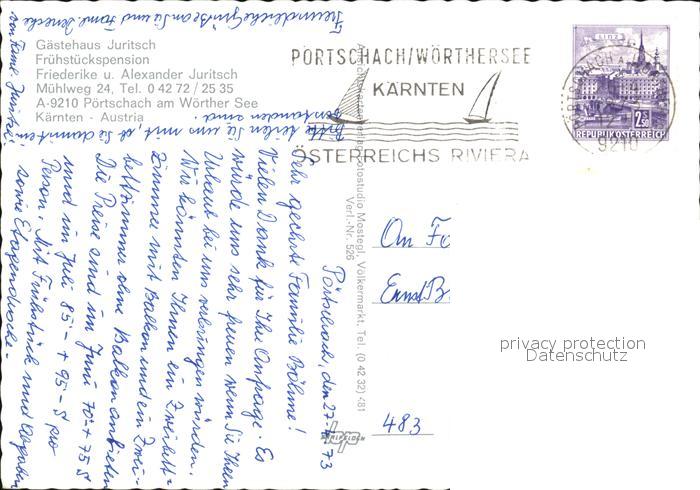 Gästehaus Juritsch
Frühstückspension
Friederike u. Alexander Juritsch
Mühlweg 24, Tel. 0 42 72 / 25 35
A-9210 Pörtschach am Wörther See
Kärnten - Austria
PÖRTSCHACH/WÖRTHERSEE
KÄRNTEN
ÖSTERREICHS RIVIERA
LINZ
2.50
REPUBLIK ÖSTERREICH
9210
Pörtschach, den 27. 73
Sehr geehrte Familie Böhme!
Vielen Dank für Ihre Anfrage. Es
würde uns sehr freuen wenn Sie Ihren
Urlaub bei uns verbringen würden.
Wir könnten Ihnen ein Zweibett-
zimmer mit Balkon und ein Zwei-
bettzimmer ohne Balkon anbieten
Die Preise sind im Juni 70.- + 75 S
und im Juli 85.- + 95.- S pro
Person. Mit Frühstück und Abgaben
sowie Etagendusche.
Bitte teilen Sie uns mit, ob Sie damit
einverstanden sind.
Freundliche Grüße an Sie und Fam.
von Fam. Juritsch
Fotostudio Mostegl, Völkermarkt, Tel. (0 42 32) 481
Verl.-Nr. 526
An Fa
Ernst B
483
privacy protection
Datenschutz